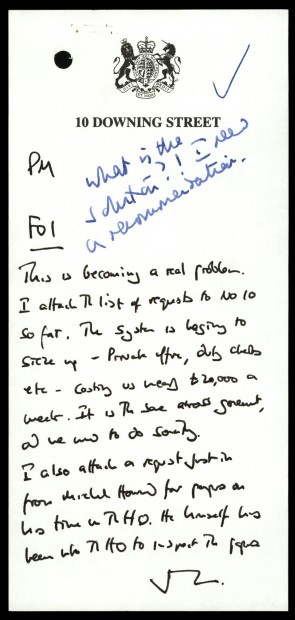 10 DOWNING STREET
PM
what is the
solution?! I need
a recommendation.
FOI
This is becoming a real problem.
I attach Th list of requests to No 10
so far. The system is beginning to
seize up - Private office, duty clerks
etc - costing us nearly £20,000 a
week. It is Th same across government,
and we need to do something.
I also attach a request just in
from Michael Howard for papers on
his time in Th HO. He himself has
been into Th HO to inspect The papers